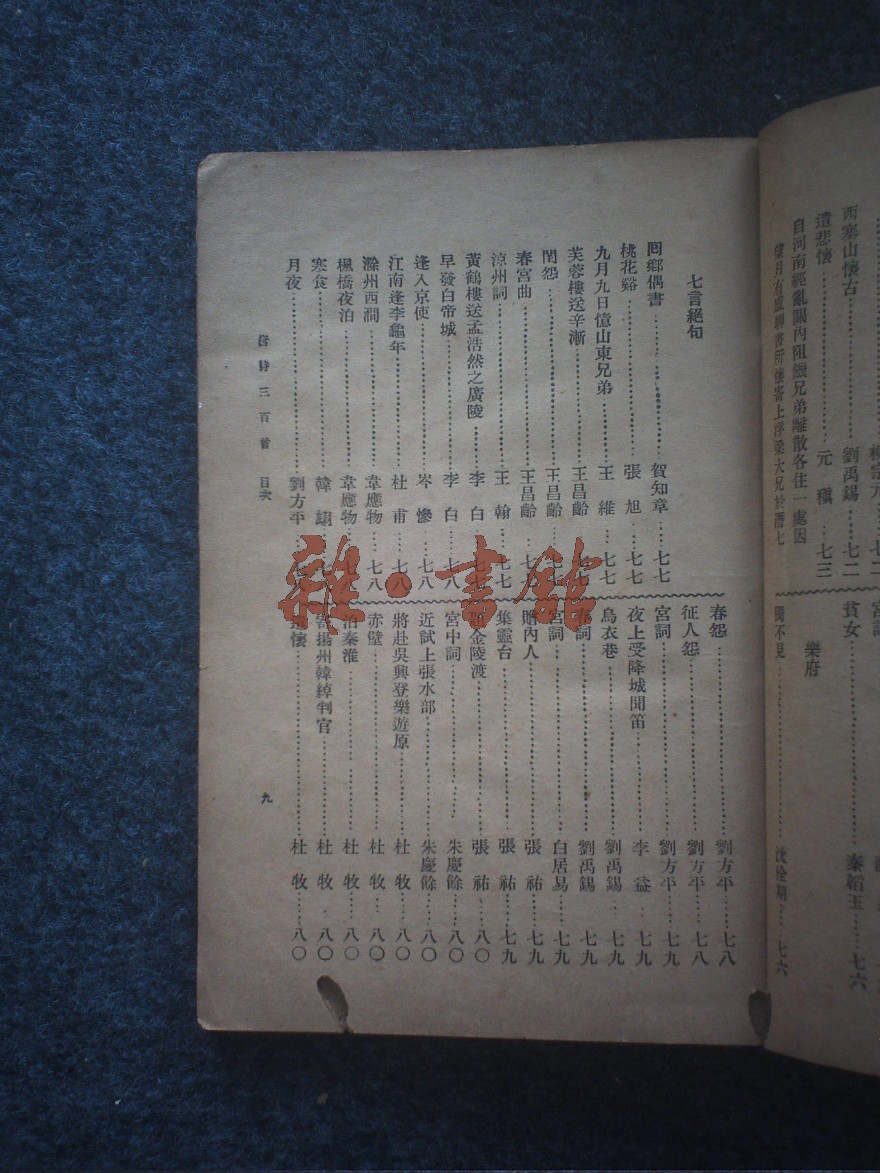 柳宗元……七二
西塞山懷古……劉禹錫……七二
遣悲懷……元稹……七三
自河南經亂關內阻饑兄弟離散各住一處因
望月有感聊書所懷寄上浮梁大兄於潛七
貧女……秦韜玉……七六
樂府
獨不見……沈佺期……七六
七言絕句
回鄉偶書……賀知章……七七
桃花谿……張旭……七七
九月九日憶山東兄弟……王維……七七
芙蓉樓送辛漸……王昌齡……七七
閨怨……王昌齡……七七
春宮曲……王昌齡……七七
涼州詞……王翰……七七
黃鶴樓送孟浩然之廣陵……李白……七七
早發白帝城……李白……七八
逢入京使……岑參……七八
江南逢李龜年……杜甫……七八
滁州西澗……韋應物……七八
楓橋夜泊……韋應物……七八
寒食……韓翃……七八
月夜……劉方平……七八
春怨……劉方平……七八
征人怨……劉方平……七八
宮詞……劉方平……七九
夜上受降城聞笛……李益……七九
烏衣巷……劉禹錫……七九
春詞……劉禹錫……七九
宮詞……白居易……七九
贈內人……張祐……七九
集靈台……張祐……七九
題金陵渡……張祐……八〇
宮中詞……朱慶餘……八〇
近試上張水部……朱慶餘……八〇
將赴吳興登樂遊原……杜牧……八〇
赤壁……杜牧……八〇
泊秦淮……杜牧……八〇
寄揚州韓綽判官……杜牧……八〇
遣懷……杜牧……八〇
唐詩三百首 目次
九
雜·書館